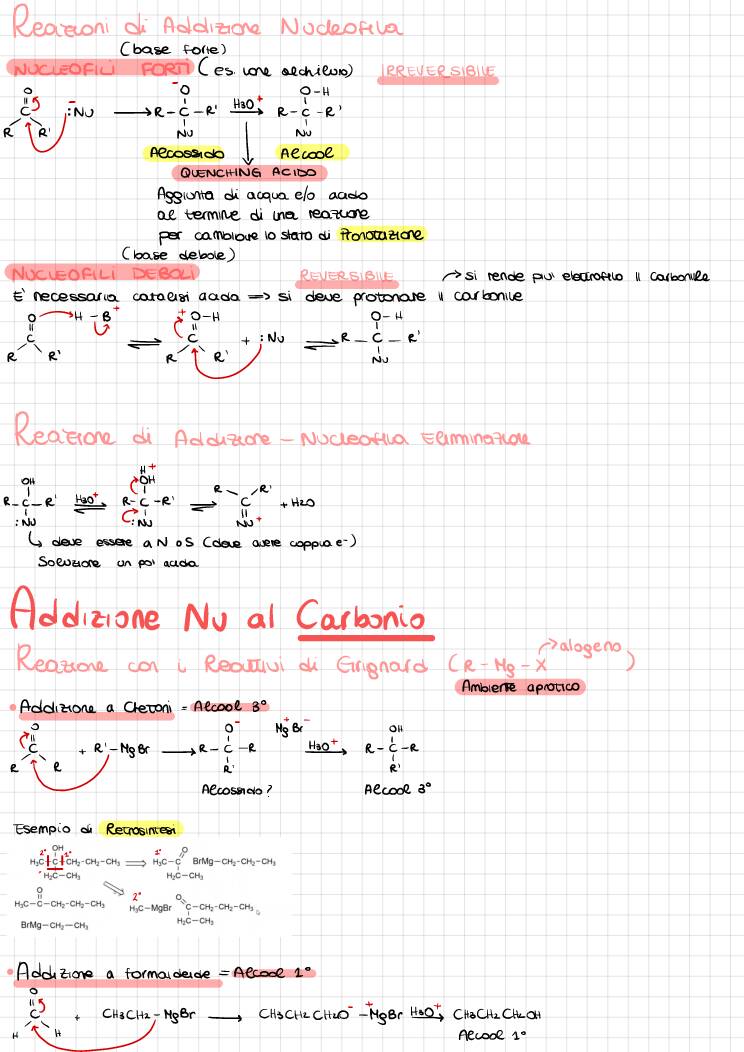 Reazioni di Addizione Nucleofila
(base forte)
NUCLEOFILI FORTI (es. ione alchiluro) IRREVERSIBILE
O
C
R R'
:Nu
O
R-C-R'
Nu
H3O+
O-H
R-C-R'
Nu
Alcossido Alcool
QUENCHING ACIDO
Aggiunta di acqua e/o acido
al termine di una reazione
per cambiare lo stato di Protonazione
(base debole)
NUCLEOFILI DEBOLI REVERSIBILE → si rende piu' elettrofilo il carbonile
E' necessaria catalisi acida => si deve protonare il carbonile
O H-B+
C
R R'
+
O-H
C
R R'
+ :Nu
O-H
R-C-R'
Nu
Reazione di Addizione - Nucleofila Eliminazione
OH
R-C-R'
:Nu
H3O+
H +
OH
R-C-R'
:Nu
R R'
C
Nu+
+ H2O
↳ deve essere a N o S (deve avere coppia e-)
Soluzione un po' acida
Addizione Nu al Carbonio
Reazione con i Reattivi di Grignard (R-Mg-X → alogeno)
Ambiente aprotico
• Addizione a Chetoni = Alcool 3°
O
C
R R
+ R'-MgBr
O-
R-C-R
R'
MgBr
+ -
H3O+
OH
R-C-R
R'
Alcossido? Alcool 3°
Esempio di Retrosintesi
2° OH 1°
H3C-C-CH2-CH2-CH3
H2C-CH3
1° O
H3C-C
H2C-CH3
BrMg-CH2-CH2-CH3
O
H3C-C-CH2-CH2-CH3
BrMg-CH2-CH3
2°
H3C-MgBr
O
C-CH2-CH2-CH3
H2C-CH3
• Addizione a formaldeide = Alcool 1°
O
C
H H
+ CH3CH2-MgBr → CH3CH2CH2O- -+MgBr H3O+ → CH3CH2CH2OH
Alcool 1°